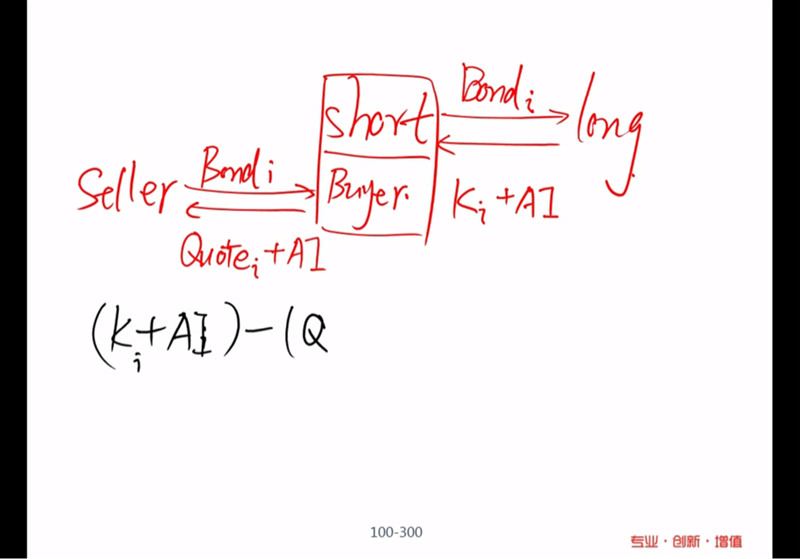 Bond i
short
long
Seller
Bond i
Buyer.
K i + AI
Quote i + AI
(K i + AI) - (Q
100-300
专业·创新·增值